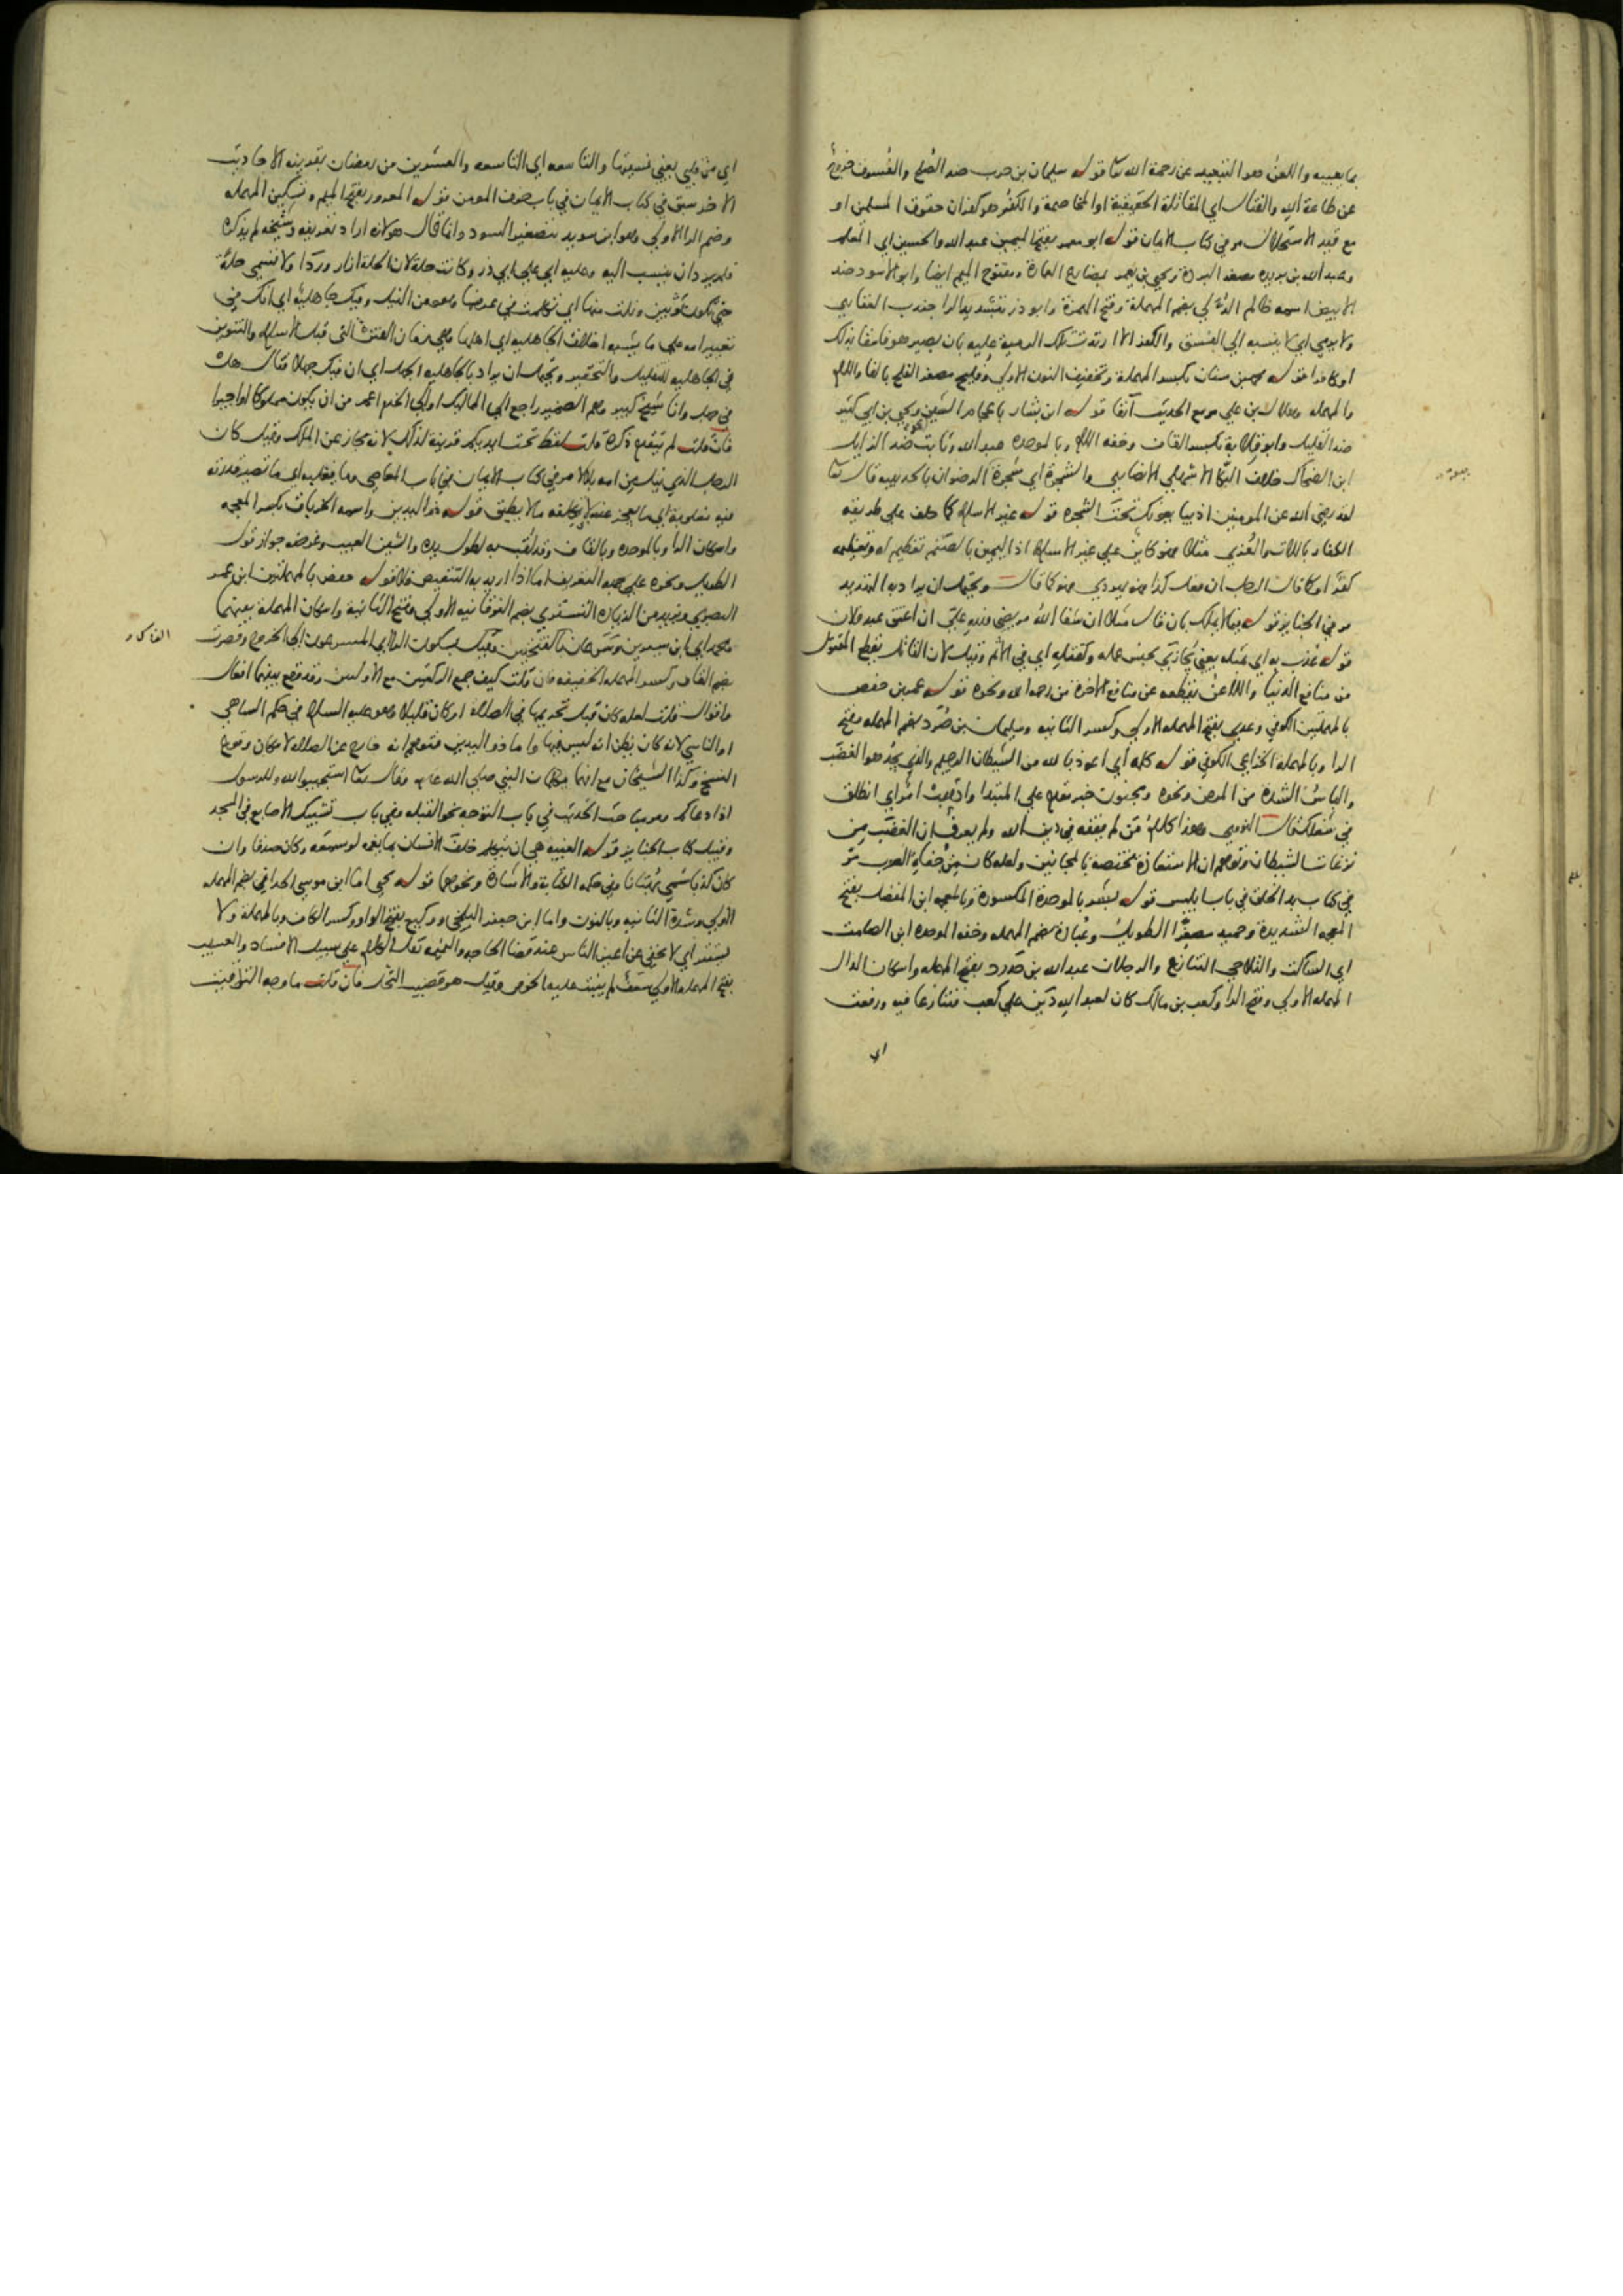 بما يعيبه واللعن هو التبعيد عن رحمة الله تعا قوله سليمان بن حرب ضد الصلح والفسوق خروج
عن طاعة الله والقتال اي المقاتلة الحقيقية او المخاصمة والكفر هو كفران حقوق المسلمين او
مع قيد الاستحلال مر في كتاب الايمان قوله ابو معمر بفتح الميمين عبد الله والحسين اي المعلم
وعبد الله بن بريده مصغر البردة ويحيى بن يعمر بمضارع العمارة ومفتوح الميم ايضا وابو الاسود ضد
الابيض اسمه ظالم الدئلي بضم المهملة وفتح الهمزة وابو ذر بتشديد الرا جندب الغفاري
ولا يرمي اي لا ينسبه الي الفسق والكفر الا ارتدت تلك الرمية عليه بان يصير هو فاسقا بذلك
او كافرا قوله محمد بن سنان بكسر المهملة وتخفيف النون الاولي وفليح مصغر الفلح بالفا واللام
والمهمله وهلال بن علي مر مع الحديث آنفا قوله ابن بشار باعجام الشين ويحيى بن ابي كثير
ضد القليل وابو قلابة بكسر القاف وخفه اللام وبالموحده عبد الله وثابت ضد الزايل
ابن الضحاك خلاف البكا الاشهلي الانصاري والشجرة اي شجرة الرضوان بالحديبيه قال تعا
لقد رضي الله عن المومنين اذ يبايعونك تحت الشجره قوله غير الاسلام كما حلف علي طريقة
الكفار باللات والعزي مثلا فهو كائن علي غير الاسلام اذ اليمين بالصنم تعظيم له وتعظيمه
كفر او كما قال الرجل ان فعل كذا فهو يهودي فهو كما قال ويحتمل ان يراد به التهديد
مر في الجنايز قوله فيما لا يملك بان قال مثلا ان شفا الله مريضي فلله علي ان اعتق عبد فلان
قوله عذب به اي بمثله يعني يجازي بجنس عمله وكقتله اي في الاثم وقيل لان القاتل يقطع المقتول
من منافع الدنيا واللاعن يقطعه عن منافع الاخرة من رحمه الله ونحوه قوله عمر بن حفص
بالمهملتين الكوفي وعدي بفتح المهمله الاولي وكسر الثانيه وسليمان بن صرد بضم المهمله وفتح
الرا وبالمهملة الخزاعي الكوفي قوله كلمه اي اعوذ بالله من الشيطان الرجيم والذي يجد هو الغضب
والباس الشدة من المرض ونحوه ومجنون خبر مقدم علي المبتدا واذهب امر اي انطلق
في شغلك قال النووي وهذا كلام من لم يفقه في دين الله ولم يعرف ان الغضب من
نزغات الشيطان وتوهم ان الاستعاذة مختصة بالمجانين ولعله كان من جفاة العرب مر
في كتاب بد الخلق في باب ابليس قوله بشر بالموحدة المكسورة وبالمعجمه ابن المفضل بفتح
المعجمه الشديدة وحميد مصغرا الطويل وعبادة بضم المهمله وخفه الموحده ابن الصامت
اي الساكت والتلاحي التنازع والرجلان عبد الله بن حدرد بفتح المهمله واسكان الدال
المهمله الاولي وفتح الرا وكعب بن مالك كان لعبد الله دين علي كعب فتنازعا فيه ورفعت
اي
اي من قلبي يعني نسيتها والتاسعه اي التاسعه والعشرين من رمضان بقرينه الاحاديث
الاخر سبق في كتاب الايمان في باب خوف المومن قوله المعرور بفتح الميم وتسكين المهمله
وضم الرا الاولي وهو ابن سويد بتصغير السود وانما قال هو لانه اراد تعريفه وشيخه لم يذكره
فلم يرد ان ينسب اليه وعليه اي علي ابي ذر وكانت حلة لان الحلة ازار وردا ولا تسمي حلة
حتي تكون ثوبين ونلت منها اي تكلمت في عرضها وهو من النيل وفيك جاهلية اي انك في
تعييرامه علي ما يشبه اخلاق الجاهليه اي اهلها وهي زمان الفترة التي قبل الاسلام والتنوين
في الجاهليه للتقليل والتحقير ويحتمل ان يراد بالجاهليه الجهل اي ان فيك جهلا فقال هل
في جهل وانا شيخ كبير وهم الضمير راجع الي المماليك او الي الخدم اعم من ان يكون مملوكا او اجيرا
فان قلت لم يتقدم ذكره قلت لفظ تحت ايديكم قرينة لذلك لانه مجاز عن الملك وقيل كان
الرجل الذي نيل من امه بلالا مر في كتاب الايمان في باب المعاصي وما يغلبه اي ما تصير قدرته
فيه مغلوبة اي ما يعجز عنه لا يكلفه ما لا يطيق قوله ذو اليدين واسمه الخرباق بكسر المعجمه
واسكان الرا وبالموحده وبالقاف وقد لقب به لطول يده والشين العيب وغرضه جواز قول
الطويل ونحوه علي جهه التعريف اما اذا اريد به التنقيص فلا قوله حفص بالمهملتين ابن عمر
البصري ويزيد من الزيادة التستري بضم الفوقانيه الاولي وفتح الثانية واسكان المهملة بينهما
ومحمد اي ابن سيرين وسرعان بالفتحتين وقيل بسكون الرا اي المسرعون الي الخروج وقصرت
بضم القاف وكسر المهمله الخفيفه فان قلت كيف جمع الركعتين مع الاوليين وقد وقع بينهما افعال
واقوال قلت لعله كان قبل تحريمها في الصلاة او كان قليلا وهو عليه السلام في حكم الساهي
او الناسي لانه كان يظن انه ليس فيها واما ذو اليدين فتوهم انه خارج عن الصلاه لامكان وقوع
النسخ وكذا الشيخان مع انهما يتكلمان النبي صلي الله عليه وقال تعا استجيبوا لله وللرسول
اذا دعاكم ومر مباحث الحديث في باب التوجه نحو القبله وفي باب تشبيك الاصابع في المسجد
وقبيل كتاب الجنايز قوله الغيبه هي ان يتكلم خلف الانسان بما يغمه لو سمعه وكان صدقا وان
كان كذبا سمي بهتانا وفي حكمه الكناية والاشارة ونحوهما قوله يحيى اما ابن موسى الحداني بضم المهمله
الاولي وشدة الثانيه وبالنون واما ابن جعفر البلخي ووكيع بفتح الواو وكسر الكاف وبالمهملة ولا
يستتر اي لا يختفي عن اعين الناس عند قضا الحاجه والنميمه نقل الكلام علي سبيل الافساد والعسيب
بفتح المهمله الاولي سعف لم ينبت عليه الخوص وقيل هو قضيب النخل فان قلت ما وجه التوفيق